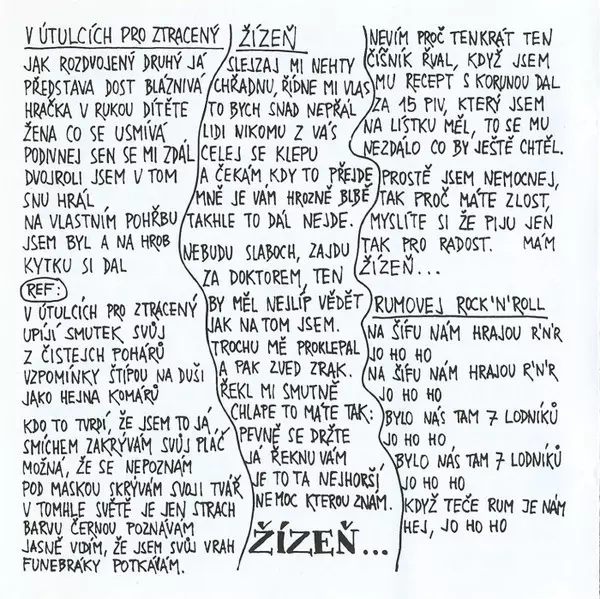 V ÚTULCÍCH PRO ZTRACENÝ
JAK ROZDVOJENÝ DRUHÝ JÁ
PŘEDSTAVA DOST BLÁZNIVÁ
HRAČKA V RUKOU DÍTĚTE
ŽENA CO SE USMÍVÁ
PODIVNEJ SEN SE MI ZDÁL
DVOJROLI JSEM V TOM
SNU HRÁL
NA VLASTNÍM POHŘBU
JSEM BYL A NA HROB
KYTKU SI DAL
REF:
V ÚTULCÍCH PRO ZTRACENÝ
UPÍJÍ SMUTEK SVŮJ
Z ČISTEJCH POHÁRŮ
VZPOMÍNKY ŠTÍPOU NA DUŠI
JAKO HEJNA KOMÁRŮ
KDO TO TVRDÍ, ŽE JSEM TO JÁ
SMÍCHEM ZAKRÝVÁM SVŮJ PLÁČ
MOŽNÁ, ŽE SE NEPOZNÁM
POD MASKOU SKRÝVÁM SVOJI TVÁŘ
V TOMHLE SVĚTĚ JE JEN STRACH
BARVU ČERNOU POZNÁVÁM
JASNĚ VIDÍM, ŽE JSEM SVŮJ VRAH
FUNEBRÁKY POTKÁVÁM.
ŽÍZEŇ
SLEJZAJ MI NEHTY
CHŘADNU, ŘÍDNE MI VLAS
TO BYCH SNAD NEPŘÁL
LIDI NIKOMU Z VÁS
CELEJ SE KLEPU
A ČEKÁM KDY TO PŘEJDE
MNĚ JE VÁM HROZNĚ BLBĚ
TAKHLE TO DÁL NEJDE.
NEBUDU SLABOCH, ZAJDU
ZA DOKTOREM, TEN
BY MĚL NEJLÍP VĚDĚT
JAK NA TOM JSEM.
TROCHU MĚ PROKLEPAL
A PAK ZVED ZRAK.
ŘEKL MI SMUTNĚ
CHLAPE TO MÁTE TAK:
PEVNĚ SE DRŽTE
JÁ ŘEKNU VÁM
JE TO TA NEJHORŠÍ
NEMOC KTEROU ZNÁM.
ŽÍZEŇ...
NEVÍM PROČ TENKRÁT TEN
ČÍŠNÍK ŘVAL, KDYŽ JSEM
MU RECEPT S KORUNOU DAL
ZA 15 PIV, KTERÝ JSEM
NA LÍSTKU MĚL, TO SE MU
NEZDÁLO CO BY JEŠTĚ CHTĚL.
PROSTĚ JSEM NEMOCNEJ,
TAK PROČ MÁTE ZLOST,
MYSLÍTE SI ŽE PIJU JEN
TAK PRO RADOST. MÁM
ŽÍZEŇ...
RUMOVEJ ROCK'N'ROLL
NA ŠÍFU NÁM HRAJOU R'N'R
JO HO HO
NA ŠÍFU NÁM HRAJOU R'N'R
JO HO HO
BYLO NÁS TAM 7 LODNÍKŮ
JO HO HO
BYLO NÁS TAM 7 LODNÍKŮ
JO HO HO
KDYŽ TEČE RUM JE NÁM
HEJ, JO HO HO